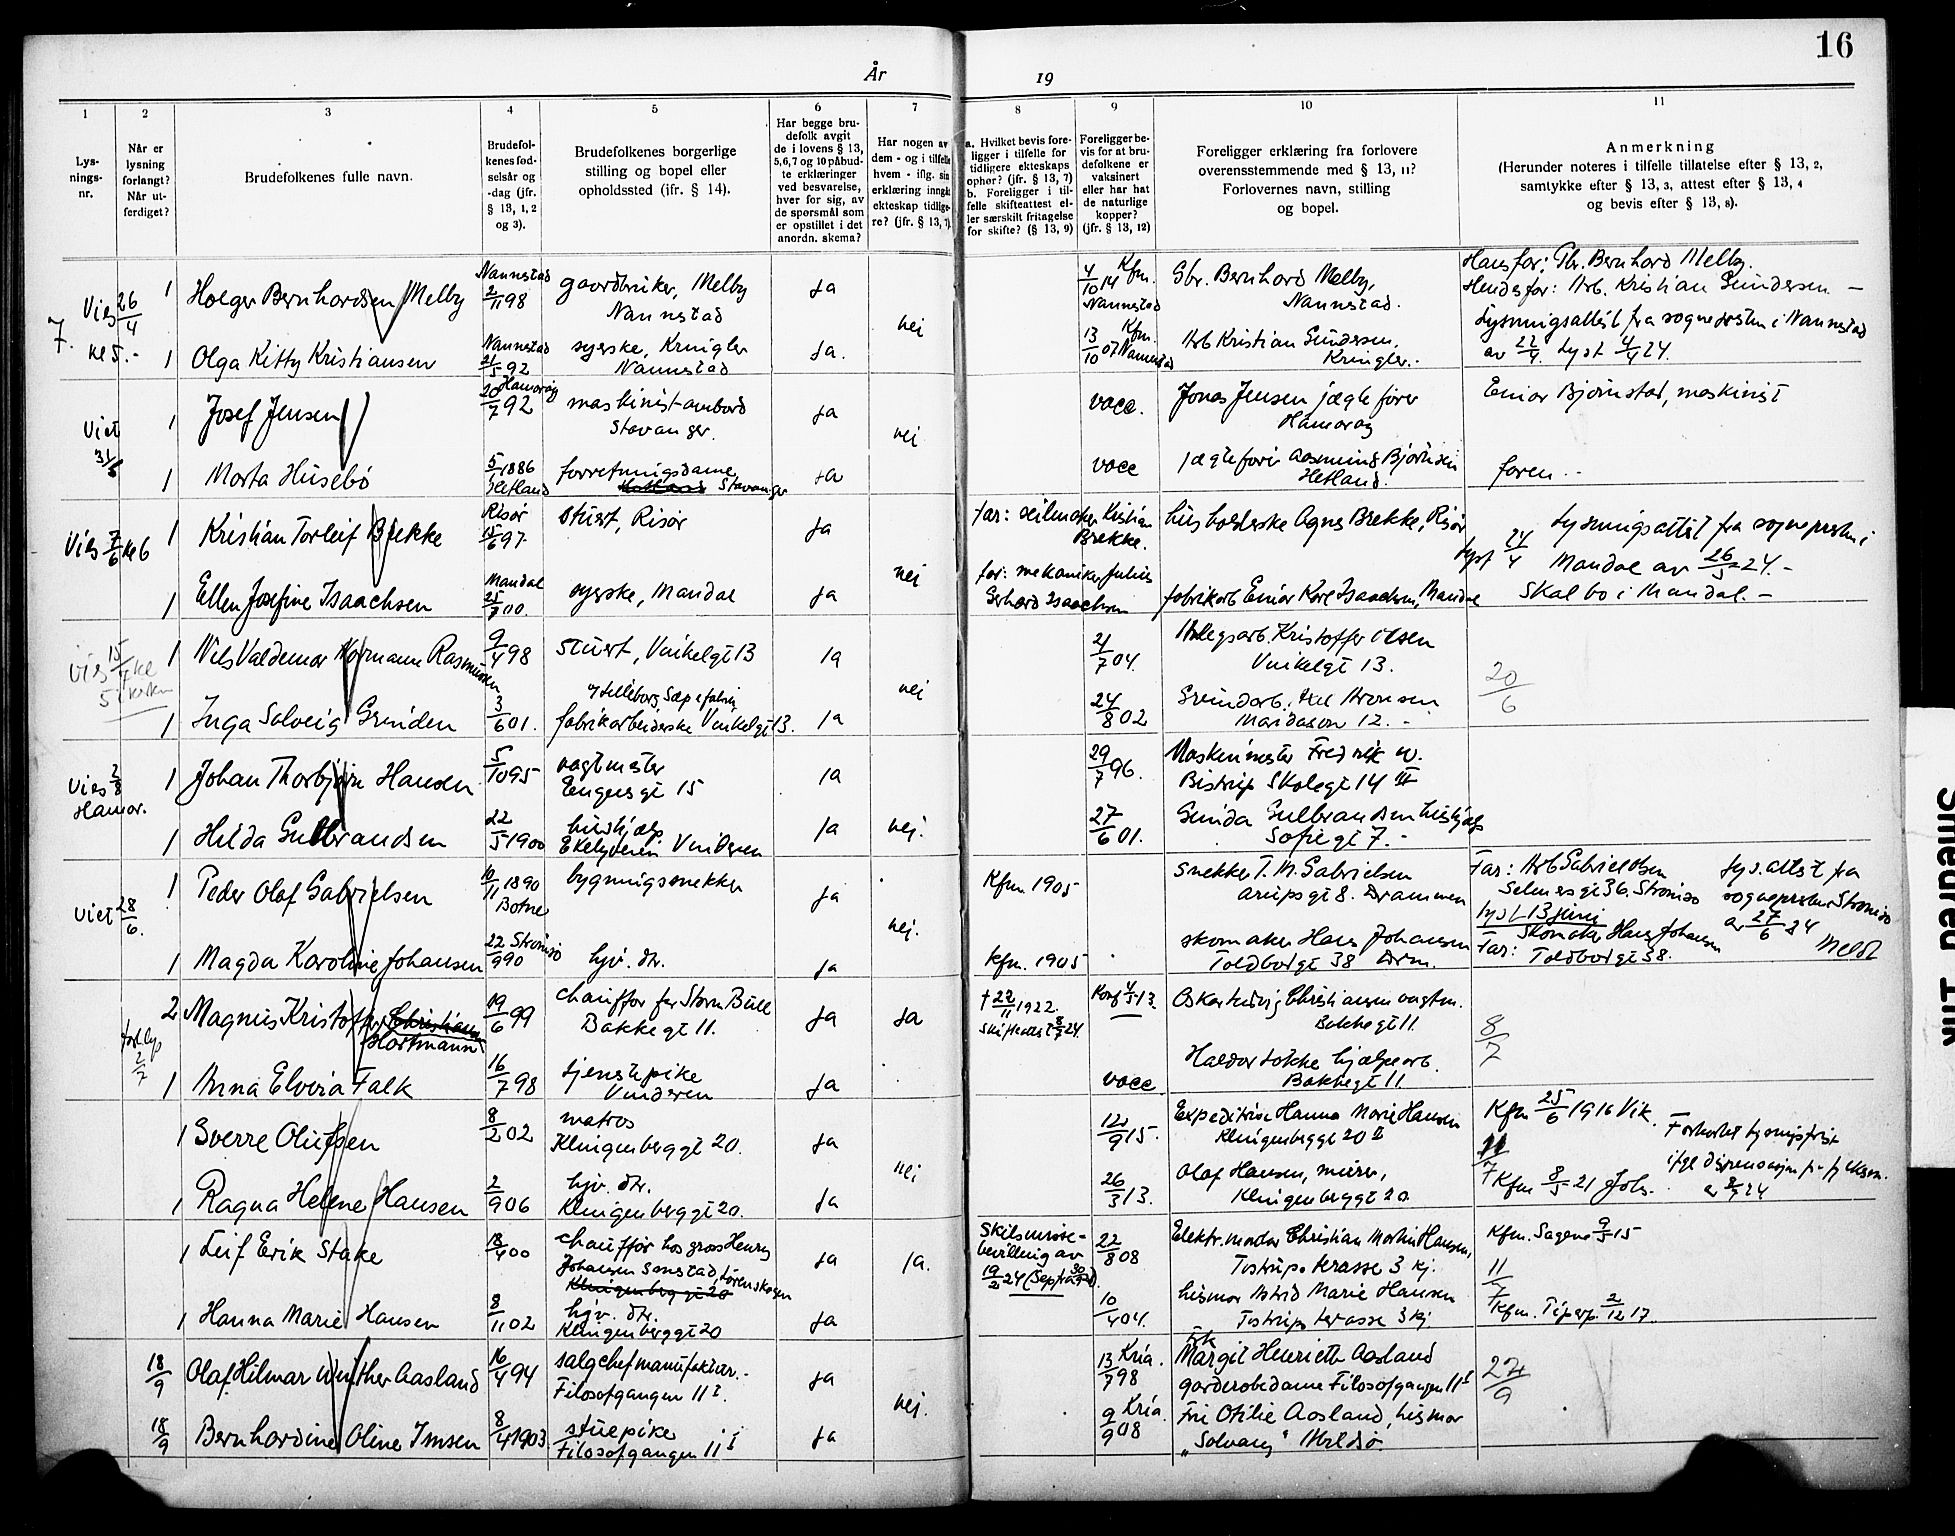 16
År 19
1
2
3
4
5
6
7
8
9
10
11
Lys-
nings-
nr.
Når er
lysning
forlangt?
Når ut-
ferdiget?
Brudefolkenes fulle navn.
Brudefol-
kenes fød-
selsår og
-dag (jfr.
§ 13, 1, 2
og 3).
Brudefolkenes borgerlige
stilling og bopel eller
opholdssted (jfr. § 14).
Har begge bru-
defolk avgit
de i lovens § 13,
5,6,7 og 10 påbud-
te erklæringer
ved besvarelse,
hver for sig, av
de spørsmål som
er opstillet i det
anordn. skema?
Har nogen av
dem - og i tilfelle
hvem - iflg. sin
erklæring inngåt
ekteskap tidlige-
re? (jfr. § 13, 7).
a. Hvilket bevis fore-
ligger i tilfelle for
tidligere ekteskaps
ophør? (jfr. § 13, 7)
b. Foreligger i til-
felle skifteattest el-
ler særskilt fritagelse
for skifte? (§ 13, 9)
Foreligger be-
vis for at bru-
defolkene er
vaksinert
eller har hat
de naturlige
kopper?
(jfr. § 13, 12)
Foreligger erklæring fra forlovere
overensstemmende med § 13, 11?
Forlovernes navn, stilling
og bopel.
Anmerkning
(Herunder noteres i tilfelle tillatelse efter § 13, 2,
samtykke efter § 13, 3, attest efter § 13, 4
og bevis efter § 13, 8).
7.
Vies 26/4
kl 5.-
1 Holger Bernhardsen Melby
Nannestad
2/11 98
gaardbruker, Melby
Nannestad
ja
nei
4/10 14 Kfm.
Nannestad
Gbr. Bernhard Melby,
Nannestad.
Hans far: Gbr. Bernhard Melby.
Hendes far: Arb. Kristian Gundersen. -
1 Olga Kitty Kristiansen
Nannestad
21/5 92
syerske, Kringler
Nannestad
ja.
13/10 07 Kfm.
Nannestad
Arb Kristian Gundersen,
Kringler.-
Lysningsattest fra sognepresten i Nannestad
av 22/4. Lyst 4/4 24.
Viet
31/5
1 Josef Jensen
20/7 92 Hamarøy
maskinist ombord
Stavanger.
ja
nei
vacc.
Jonas Jensen jægtefører
Hamarøy
Einar Bjørnstad, maskinist
1 Marta Husebø
5/5 1886
Hetland
forretningsdame
Hetland Stavanger
ja
vacc
jægtefører Aasmund Bjørnsen
Hetland.
faren..
Vies 7/6 kl 6
1 Kristian Torleif Brekke
Risør
15/6 97.
stuert, Risør
ja
nei
far: seilmaker Kristian
Brekke.
husholderske Agnes Brekke, Risør
lyst 24/4
Lysningsattest fra sogneprest i
Mandal av 26/5 24.-
Skal bo i Mandal.-
1 Ellen Josefine Isaachsen
Mandal
25/7 00.
syerske, Mandal
ja
far: mekaniker Julius
Gerhard Isaachsen
fabrikarb Einar Karl Isaachsen, Mandal
Vies 15/7 kl
5 i kirken
1 Nils Valdemar Normann Rasmussen
9/4 98
stuert, Vinkelgt 13
ja
nei
21/7 04.
Anlegsarb. Kristoffer Olsen
Vinkelgt 13.
20/6
1 Inga Solveig Grinden
3/6 01.
v/ Lilleborg Sæpefabrik
fabrikarbeiderske Vinkelgt 13.
ja
24/8 02
Maridalsvn 12. -
Vies 2/8
Hamar.
1 Johan Thorbjørn Hansen
5/10 95
vagtmester
Eugensgt 15
ja
29/7 96.
Maskinmester Fredrik W.
Bistrup Skolegt 14 III
1 Hilda Gulbrandsen
22/5 1900
hushjælp
Ekelyveien Vinderen
ja
nei.
27/6 01.
Gunda Gulbrandsen hushjælp
Sofiegt 7.-
Viet 28/6.
1 Peder Olaf Gabrielsen
10/11 1890
Botne
bygningssnekker
ja
nei.
Kfm. 1905
snekker T. M. Gabrielsen
arupsgt 8. Drammen
Far: Arb Gabriel Olsen
Selmersgt 36. Strømsø
lyst 13 juni
Lys.attest fra
sogneprest Strømsø
av 27/6 24
Meldt
1 Magda Karoline Johansen
22/9 90 Strømsø
hjv. dtr.
ja
Kfm. 1905
skomaker Hans Johansen
Toldbodgt 38 Drm.
Far: Skomaker Hans Johansen
Toldbodgt 38.
forl.lys
2/7
2 Magnus Kristoffer Christiansen
Hartmann
19/6 99
chauffør for Storm Bull
Bakkegt 11.
ja
ja
† 22/11 1922.
Skifteattest 8/7 24.
Konf 4/5 13.
Oskar Ludvig Christiansen vagtm.
Bakkegt 11.
8/7
1 Anna Elvira Falk
16/7 98
tjenstpike
Vinderen
ja
vacc
Haldor Løkke hjælpearb.
Bakkegt 11
1 Sverre Olufsen
8/2 02
matros
Klingenberggt 20.
ja
nei
12/9 15.
Expeditrise Hanna Marie Hansen
Klingenberggt 20 II
Kfm 25/6 1916 Vik.
11/7
Forkortet lysningsfrist
ifgl dispensasjon fr. fylkesm.
av 8/7 24
1 Ragna Helene Hansen
2/9 06
hjv. dtr.
Klingenberggt 20.
ja
26/3 13.
Olaf Hansen, murer,
Klingenberggt 20
Kfm 8/5 21 Joh.
1 Leif Erik Stake
18/4 00
chauffør hos gross Henry
Johansen Sønstad, Lørenskogen
Klingenberggt 20
ja
ja.
Skilsmisse-
bevilling av
19/2 24
22/8 08
Elektr.montør Christian Martin Hansen,
Tostrups terasse 3 kj.
Kfm. Sagene 9/5 15
11/7
1 Hanna Marie Hansen
8/11 02
hjv. dtr.
Klingenberggt 20
ja
10/4 04.
husmor Astrid Marie Hansen
Tostrups terasse 3 kj.
Kfm. 2/12 17.
18/9
Olaf Hilmar Winther Aasland
16/4 94
salgchef manufaktur.-
Filosofgangen 11 I.
ja
nei.
13/7 98 Kria.
Frk
Margit Henriette Aasland
garderobedame Filosofgangen 11 I
22/9
18/9
Bernhardine Oline Imsen
8/4 1903
stuepike
Filosofgangen 11 I
ja
9/9 08 Kria.
Fru Otilie Aasland, husmor
"Solvang"